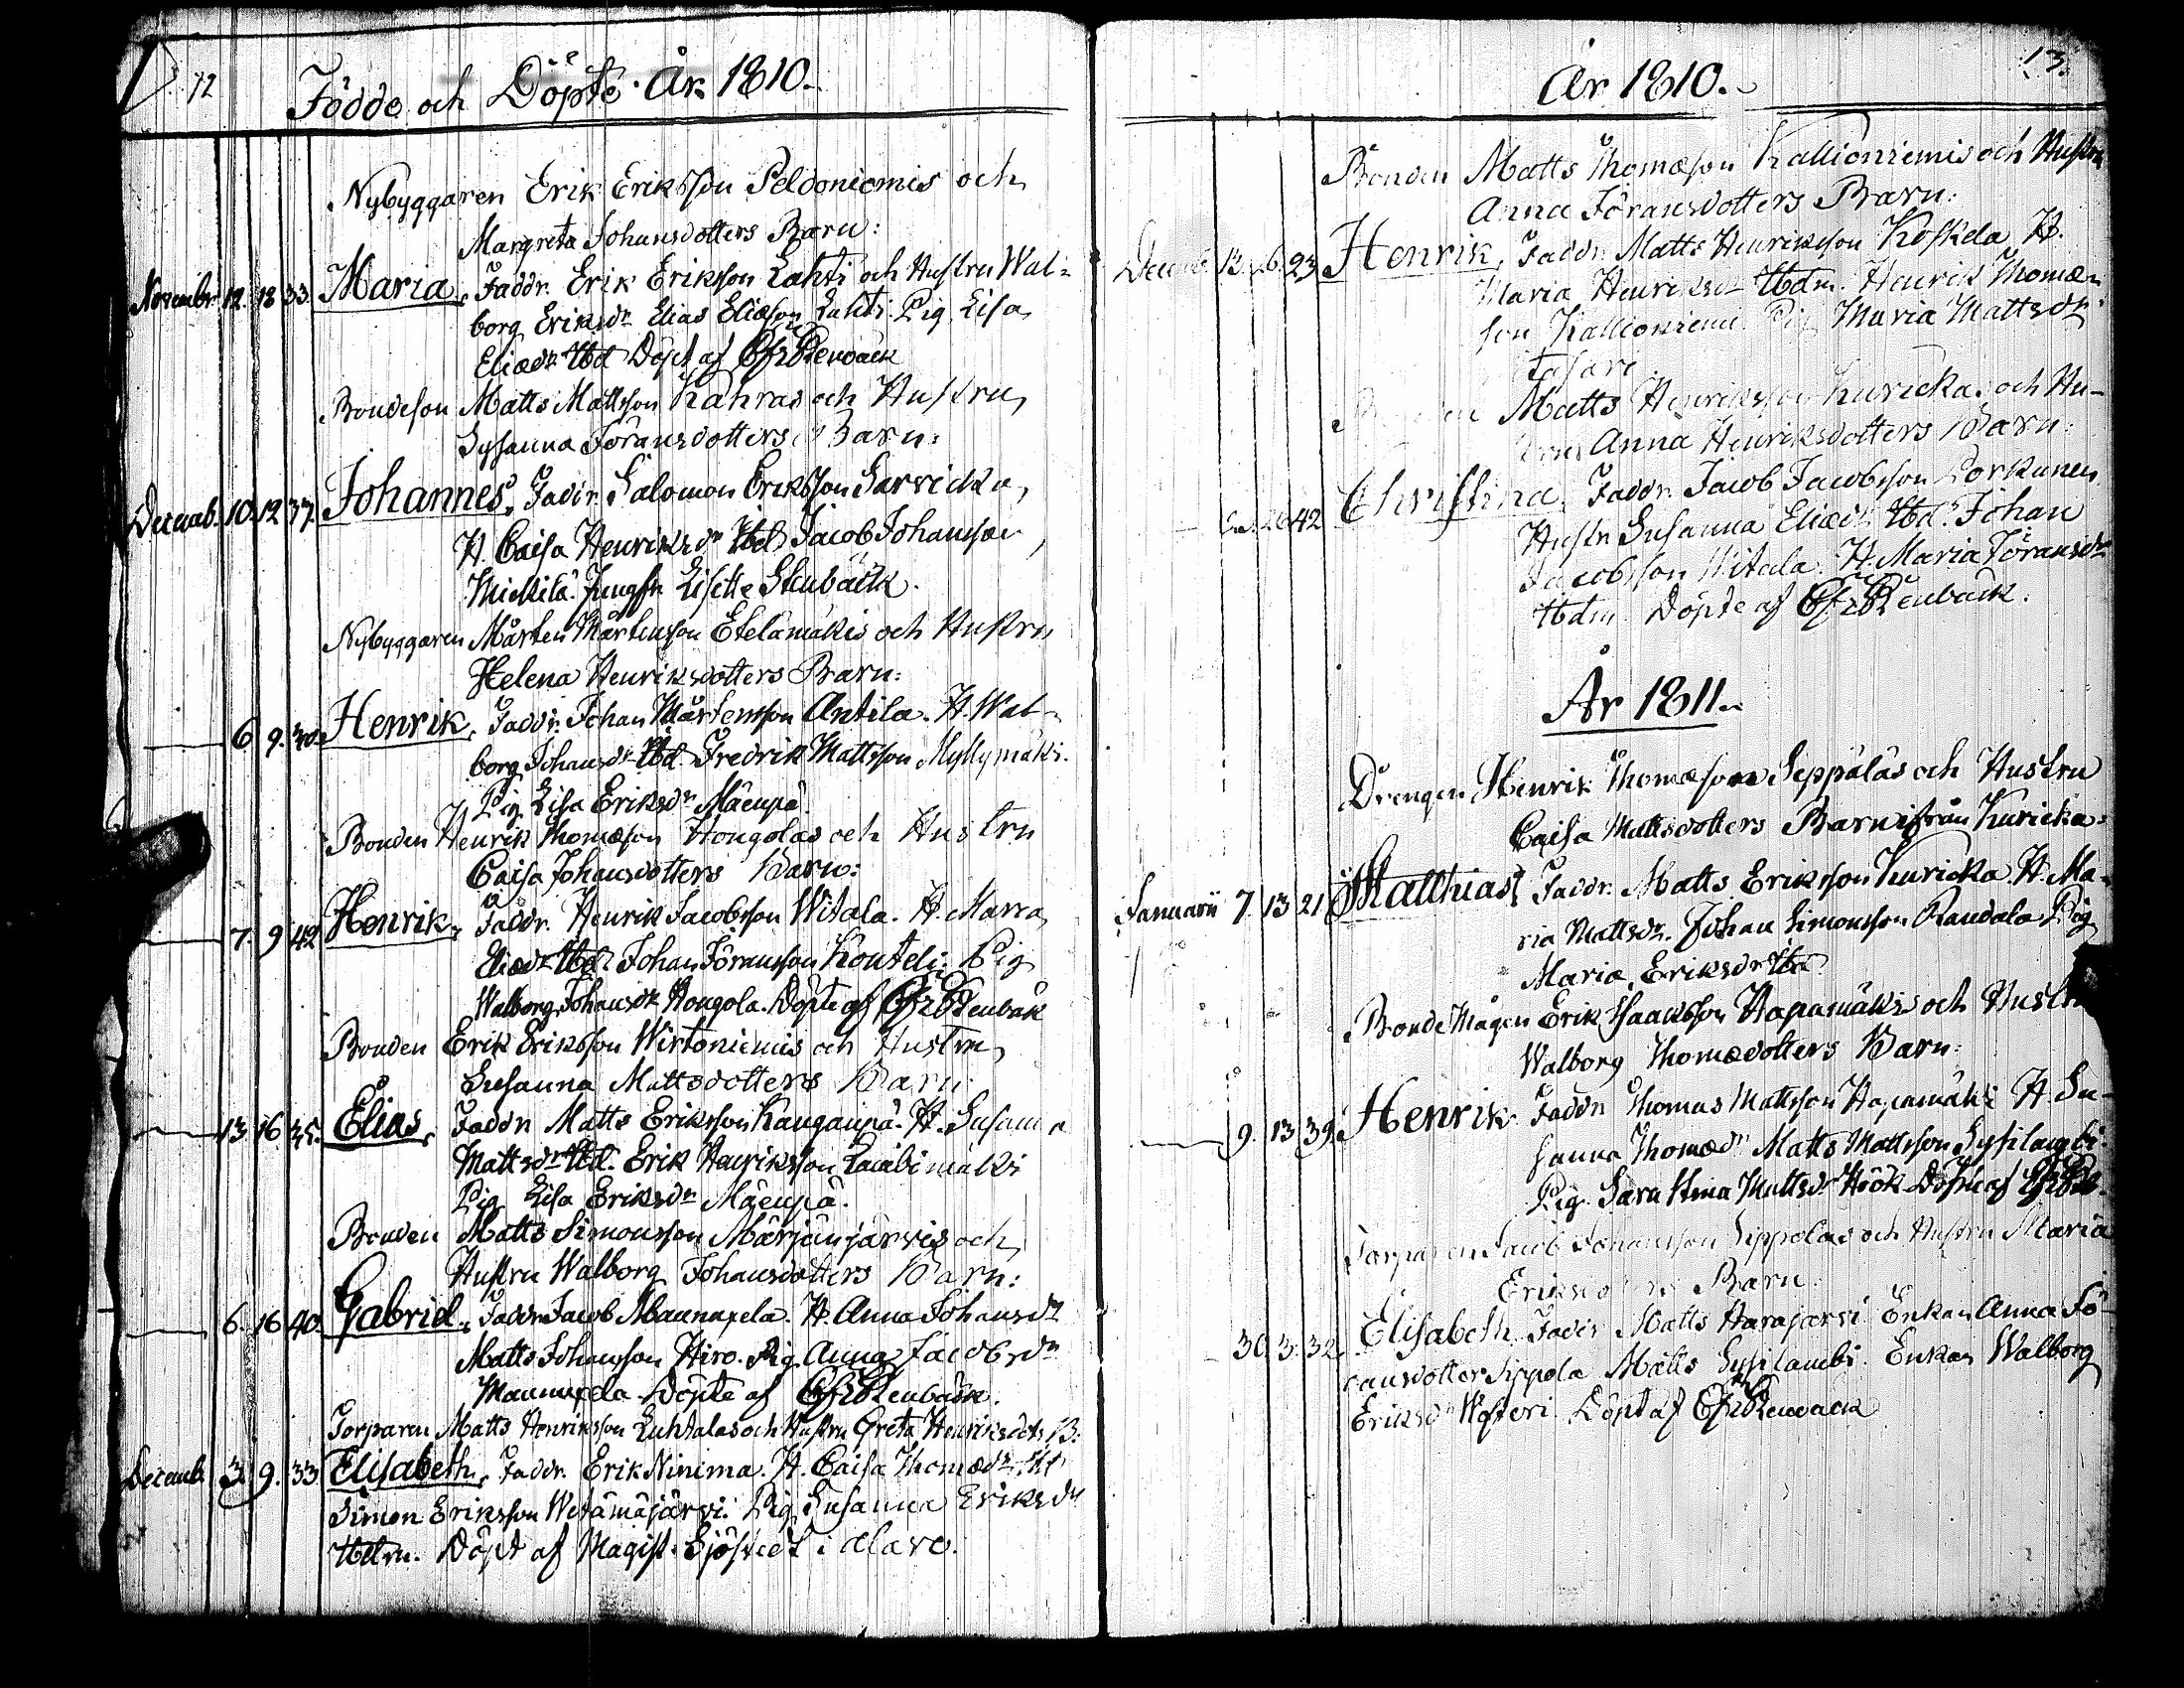 12
Födde och Döpte År 1810.
Nybyggaren Erik Eriksson Peldoniemis och
Margreta Johansdotters Barn:
Novembr 12. 18 33. Maria, Faddr. Erik Erikson Lahti och Hustru Wal-
borg Eriksdr Elias Eliæson Lahti. Pig. Lisa
Eliædr Ibd Döpt af
Bondeson Matts Mattsson Kahras och Hustru
Susanna Jöransdotters Barn:
Decemb. 10. 12 37. Johannes, Faddr. Salomon Eriksson Sarvicka,
H. Caisa Henriksdr Ibd Jacob Johansson
Mickilä. Jungfr. Lisette Stenbäck.
Nybyggaren Mårten Mårtensson Etelämäkis och Hustru
Helena Henriksdotters Barn:
6 9. 30. Henrik, Faddr. Johan Mårtensson Antila. H. Wal-
borg Johansdr Ibd. Fredrik Mattsson Myllymäki.
Pig. Lisa Eriksdr Mäenpä.
Bonden Henrik Thomæson Hongolas och Hustru
Caisa Johansdotters Barn:
7. 9 42 Henrik, Faddr. Henrik Jacobsson Witala. H. Maria
Eliædr Ibd. Johan Jöransson Kouteli. Pig
Walborg Johansdr Hongola. Döpte af
Bonden Erik Eriksson Wirtoniemis och Hustru
Susanna Mattsdotters Barn:
13 16 35. Elias, Faddr. Matts Eriksson Kanganpä. H. Susanna
Mattsdr Ibd. Erik Henriksson
Pig. Lisa Eriksdr Mäenpä.
Bonden Matts Simonsson Märjänjärvis och
Hustru Walborg Johansdotters Barn:
6. 16 40. Gabriel, Faddr. Jacob Maunuxela. H. Anna Johansdr
Matts Johansson Hiro. Pig. Anna Jacobsdr
Maunuxela. Döpte af
Torparen Matts Henriksson Luhtalas och Hustru Greta Henriksdots B:
Decemb. 3. 9. 33 Elisabeth, Faddr. Erik Ninima. H. Caisa Thomædr Ibd
Simon Eriksson Wetämäjärvi. Pig. Susanna Eriksdr
Ibdm. Döpt af Magist. Sjöstedt i Alavo.
13.
År 1810.
Bonden Matts Thomæson Kallioniemis och Hustru
Anna Jöransdotters Barn:
Decemb. 13. 16. 23 Henrik, Faddr. Matts Henriksson Koskela H.
Maria Henriksdr Ibdm. Henrik Thomæ-
son Kallioniemi. Pig. Maria Mattsdr
Matts Henriksson Kurickas och Hu-
stru Anna Henriksdotters Barn:
26 42 Christina, Faddr. Jacob Jacobsson Porkunen
Hustr. Susanna Eliædr Ibd. Johan
Jacobsson Witala. H. Maria Jöransdr
Ibdm. Döpte af
År 1811.
Drengen Henrik Thomæson Seppäläs och Hustru
Caisa Mattsdotters Barn ifrån Kuricka:
Januarii 7. 13 21 Matthias, Faddr. Matts Eriksson Kuricka. H. Ma-
ria Mattsdr. Johan Simonsson Randala. Pig
Maria Eriksdr Ibd
Bonde Mågen Erik Isaaksson Hapamäkis och Hustru
Walborg Thomædotters Barn:
9. 13 39. Henrik Faddr. Thomas Mattsson Hapamäki H. Su-
sanna Thomædr Matts Mattsson Sysilambi.
Pig. Sara Stina Mattsdr Höök Döpte af
Torparen Jacob Johansson Sippolas och Hustru Maria
Eriksdotters Barn.
30. 3. 32. Elisabeth. Faddr. Matts Harajärvi. Enkan Anna Jö-
ransdotter Sippola Matts Sysilambi. Enkan Walborg
Eriksdr Westeri. Döpt af